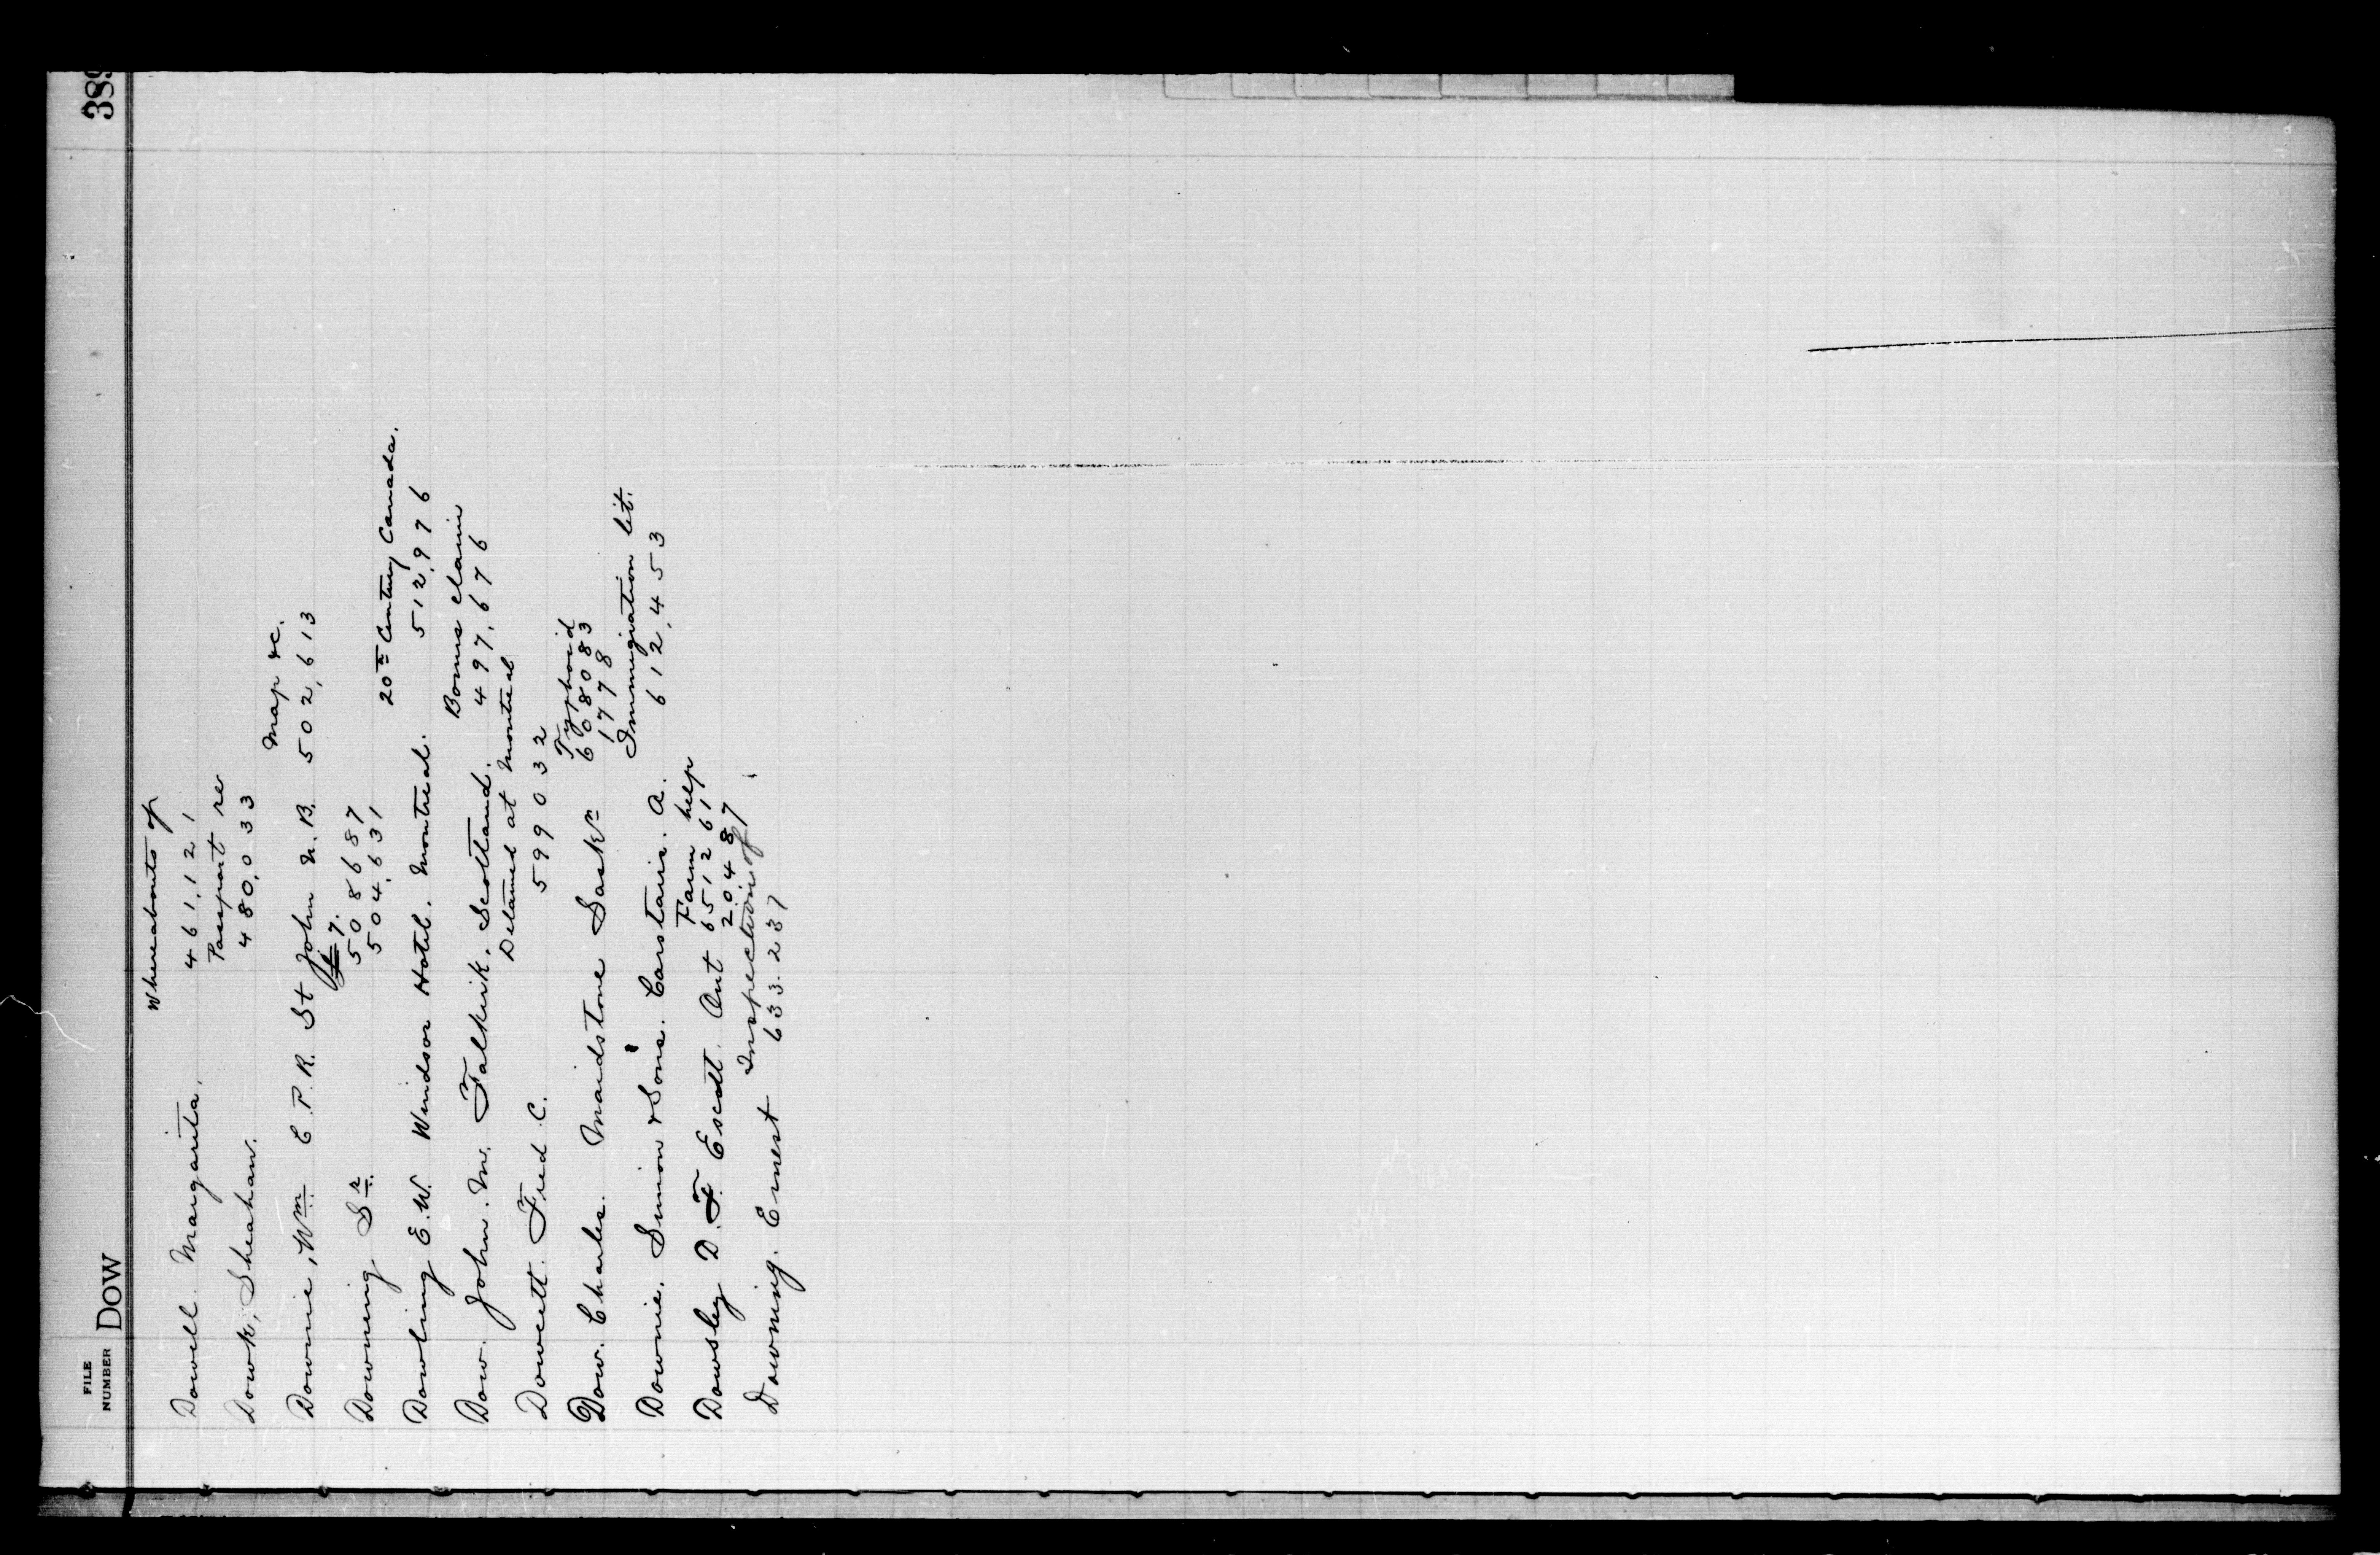 FILE NUMBER DOW 389
Whereabouts of
Dowell. Margarita. 461,121
Passport re
Dowk, Sheahan. 480,033
Map &c.
Downie, Wm. C.P.R. St John N.B. 502,613
7.
Downing Sr. 508687
504,631
20th Century Canada.
Dowling E.W. Windsor Hotel. Montreal. 512,976
Bonus claim
Dow. John. M. Falkirk. Scotland. 497,676
Detained at Montreal
Dowett. Fred C. 599032
Typhoid
Dow. Charles. Maidstone Sask'n 608083
17778
Immigration lit.
Downie. Simon & Sons. Carstairs. A. 612,453
Farm help
Dowsley D. F. Escott. Ont 651261
20487
Inspection of
Downing. Ernest 633.237